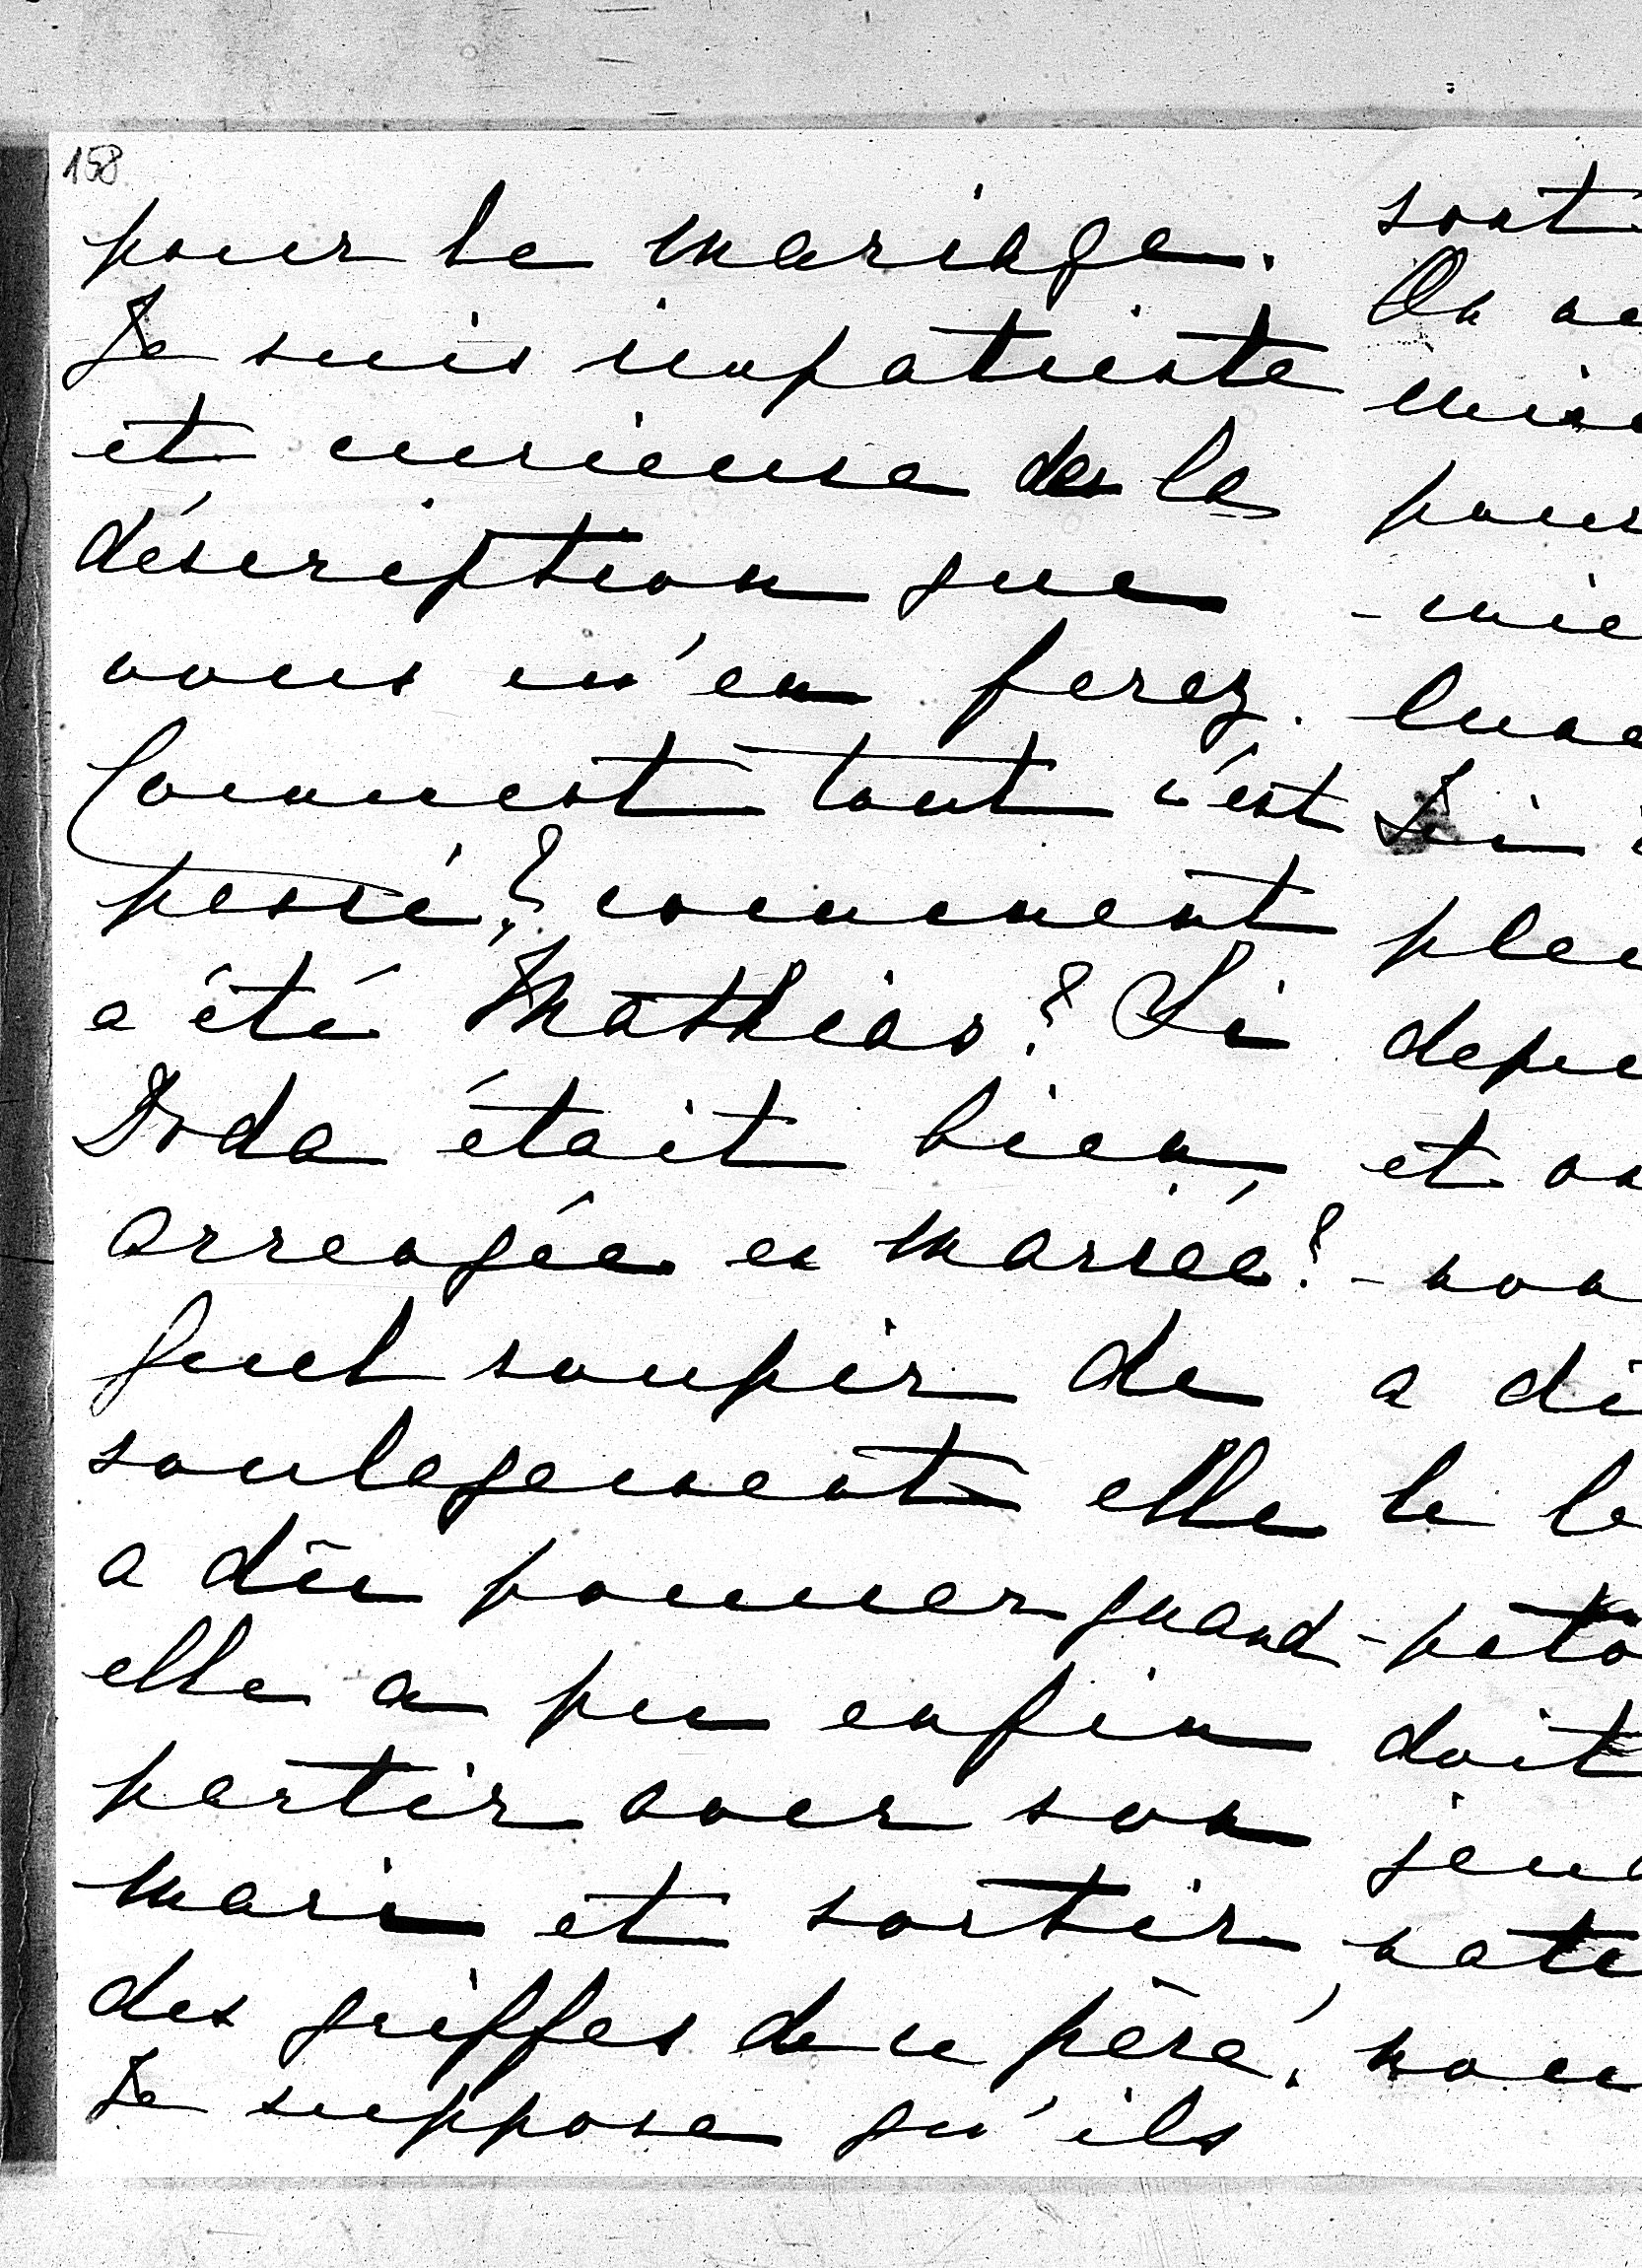 158
pour le mariage.
Je suis impatiente
et curieuse de la
déscription que
vous m'en ferez.
Comment tout c'est
passé? comment
a été Mathias? Si
Doda était bien
arrangée en mariée?
Quel soupir de
soulagement elle
a dû pousser quand
elle a pu enfin
partir avec son
mari et sortir
des griffes de ce père!
Je suppose qu'ils
sont
On
pour
et
a
le
doit